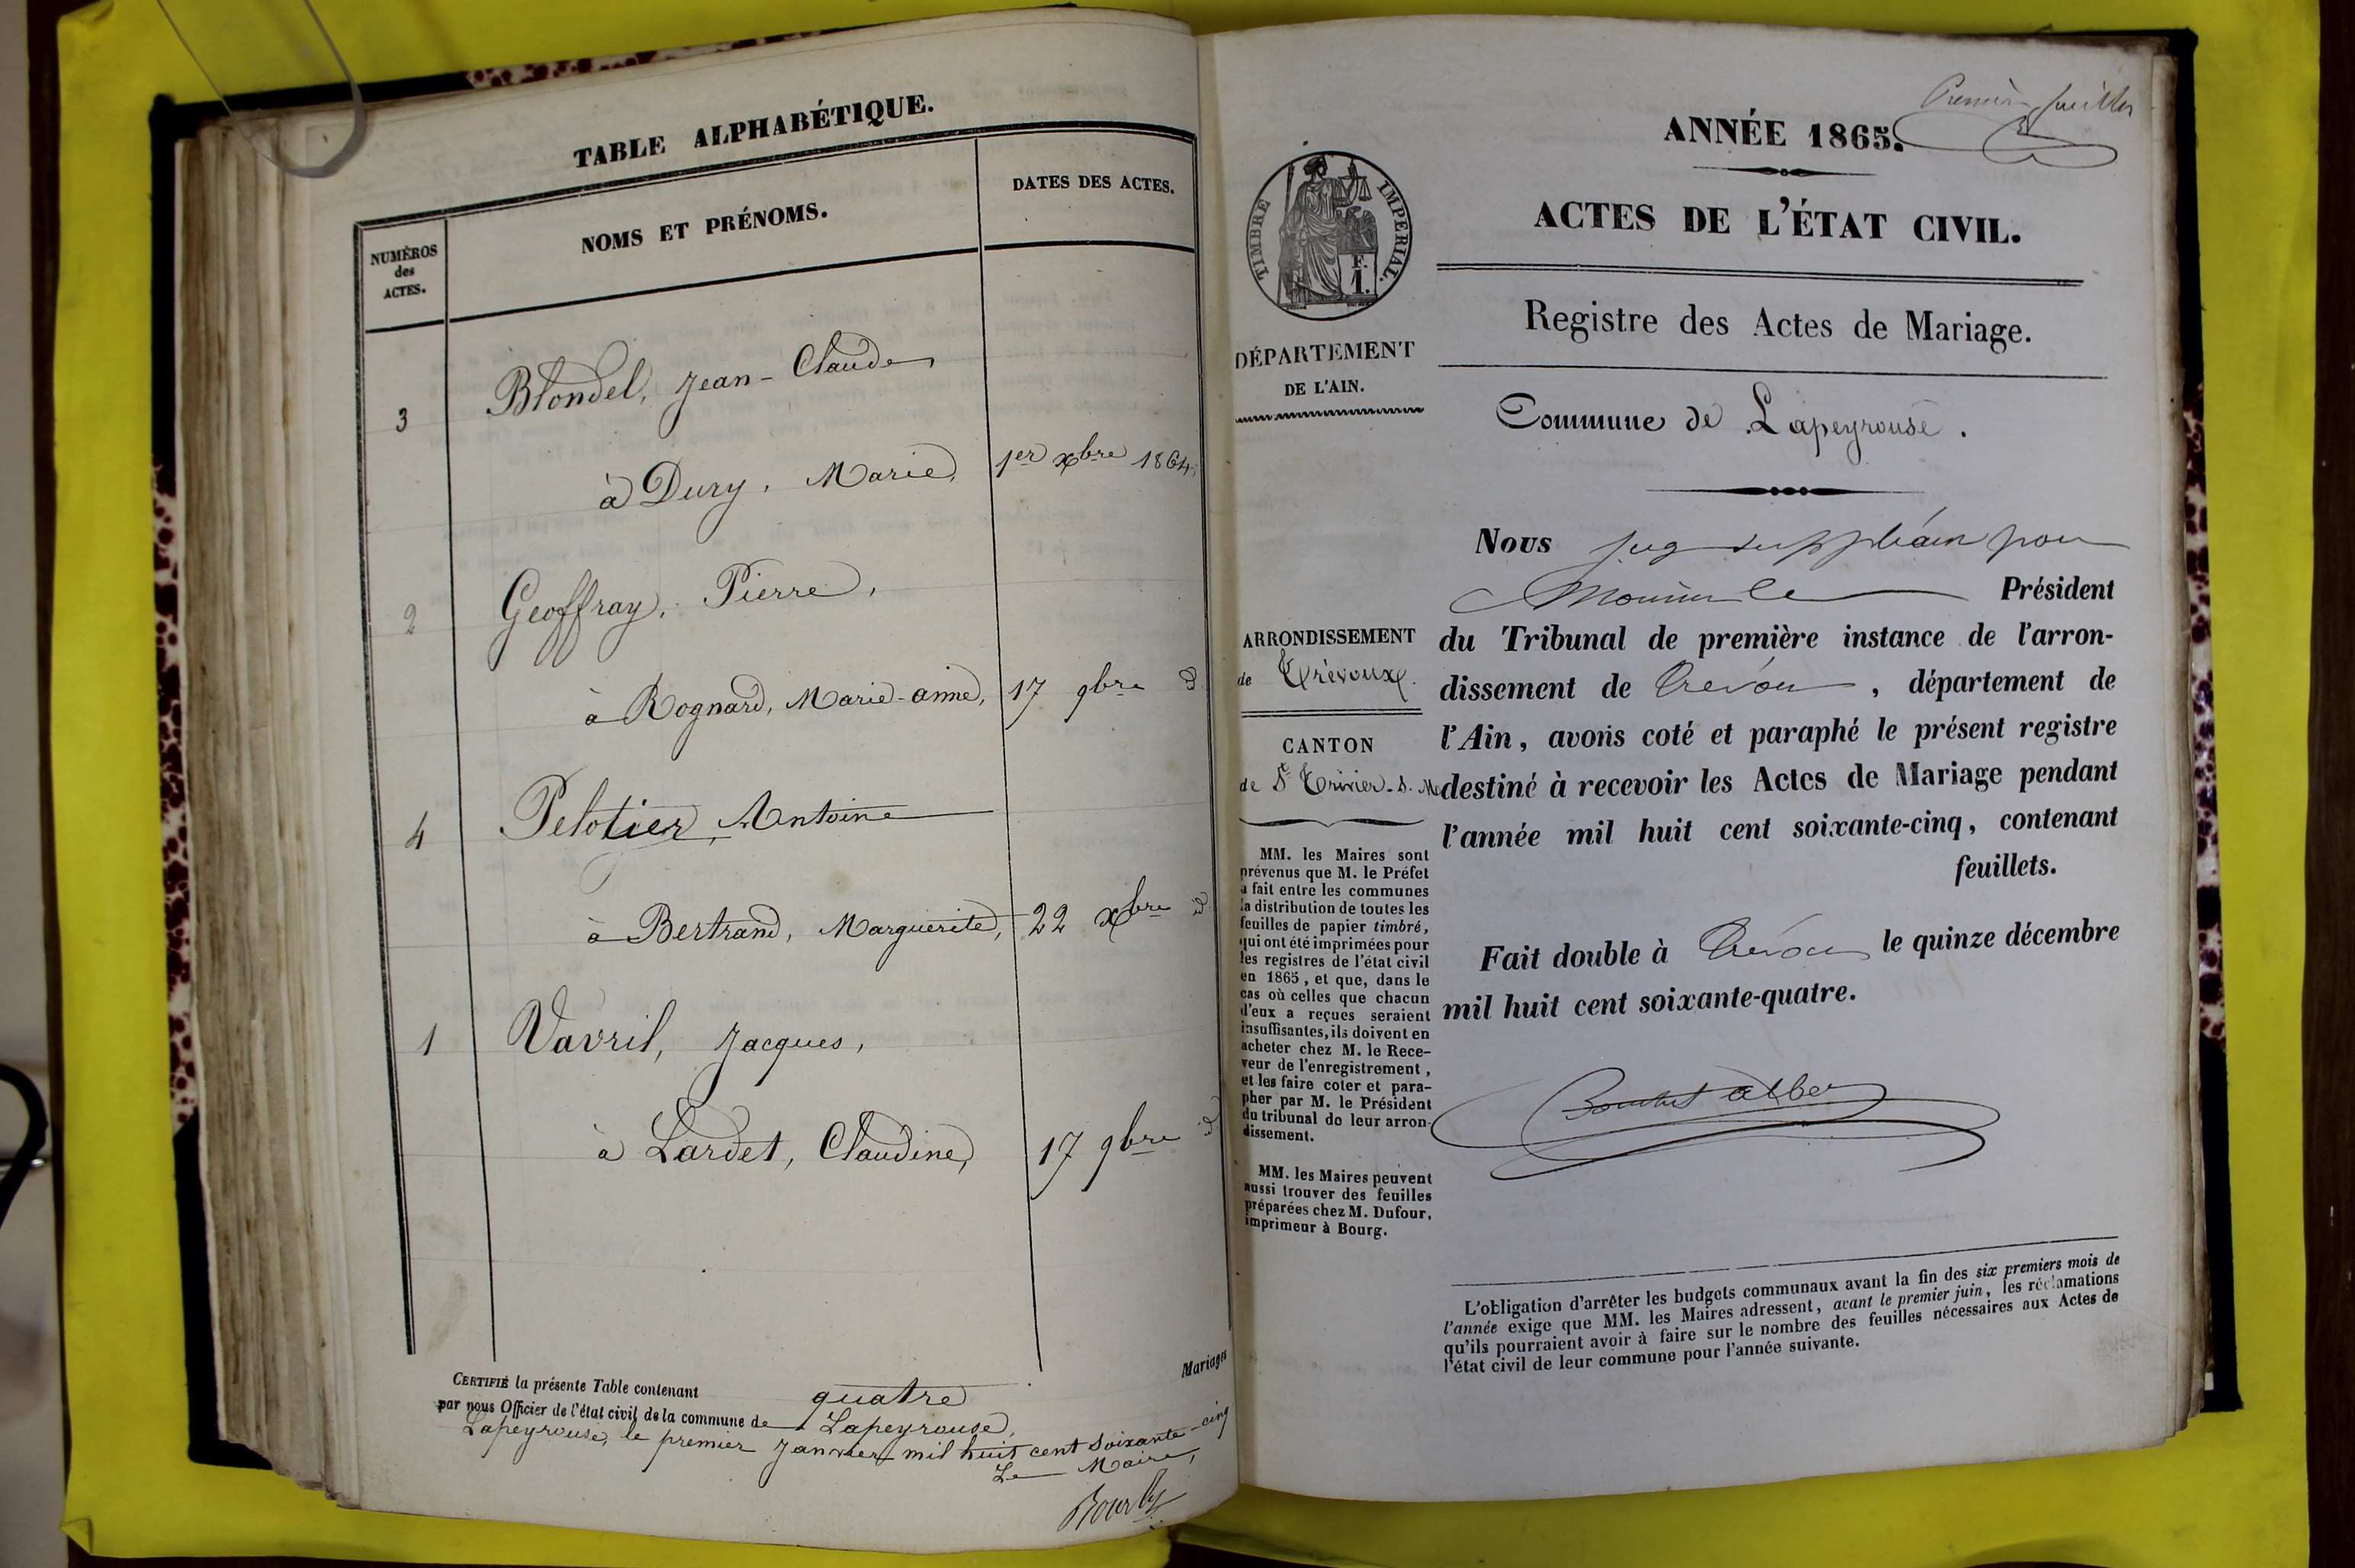 TABLE ALPHABÉTIQUE.
NUMÉROS
des
ACTES.
NOMS ET PRÉNOMS.
DATES DES ACTES.
3 Blondel, Jean-Claude
à Dury, Marie, 1er xbre 1864,
2 Geoffray, Pierre,
à Rognard, Marie-anne, 17 9bre id
4 Pelotier, Antoine
à Bertrand, Marguerite, 22 xbre id
1 Vavril, Jacques,
à Lardet, Claudine, 17 9bre id
Mariages
CERTIFIÉ la présente Table contenant quatre
par nous Officier de l'état civil de la commune de Lapeyrouse,
Lapeyrouse, le premier Janvier mil huit cent soixante-cinq
Le Maire,
Premier feuillet
ANNÉE 1865.
ACTES DE L'ÉTAT CIVIL.
Registre des Actes de Mariage.
TIMBRE IMPERIAL.
F.
1.
DÉPARTEMENT
DE L'AIN.
Commune de Lapeyrouse.
ARRONDISSEMENT
de Trévoux.
CANTON
de St Trivier-s.M
MM. les Maires sont
prévenus que M. le Préfet
a fait entre les communes
la distribution de toutes les
feuilles de papier timbré,
qui ont été imprimées pour
les registres de l'état civil
en 1865, et que, dans le
cas où celles que chacun
d'eux a reçues seraient
insuffisantes, ils doivent en
acheter chez M. le Rece-
veur de l'enregistrement,
et les faire coter et para-
pher par M. le Président
du tribunal de leur arron-
dissement.
MM. les Maires peuvent
aussi trouver des feuilles
préparées chez M. Dufour,
imprimeur à Bourg.
Nous jug suppléan pour
Président
du Tribunal de première instance de l'arron-
dissement de Trévoux, département de
l'Ain, avons coté et paraphé le présent registre
destiné à recevoir les Actes de Mariage pendant
l'année mil huit cent soixante-cinq, contenant
feuillets.
Fait double à Trévoux le quinze décembre
mil huit cent soixante-quatre.
L'obligation d'arrêter les budgets communaux avant la fin des six premiers mois de
l'année exige que MM. les Maires adressent, avant le premier juin, les réclamations
qu'ils pourraient avoir à faire sur le nombre des feuilles nécessaires aux Actes de
l'état civil de leur commune pour l'année suivante.